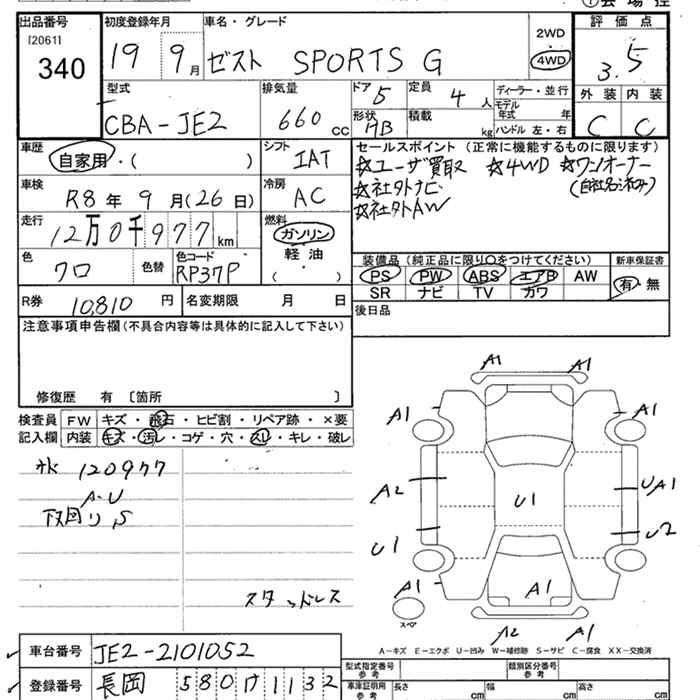 出品番号
[2061]
340
初度登録年月
19 9月
車名・グレード
ゼスト SPORTS G
2WD
4WD
評価点
3.5
型式
CBA-JE2
排気量
660cc
ドア
5
定員
4人
形状
HB
積載
kg
ディーラー・並行
モデル年式 年
ハンドル 左・右
外装 内装
C C
車歴
自家用・( )
シフト
IAT
セールスポイント (正常に機能するものに限ります)
☆ユーザ買取 ☆4WD ☆ワンオーナー
☆社外ナビ (自社名済み)
☆社外AW
車検
R8年9月(26日)
冷房
AC
走行
12万0千977km
燃料
ガソリン
軽油
( )
色
クロ
色替
色コード
RP37P
装備品 (純正品に限り○をつけてください)
PS PW ABS エアB AW
SR ナビ TV カワ
新車保証書
有・無
R券
10,810円
名変期限 月 日
後日品
注意事項申告欄(不具合内容等は具体的に記入して下さい)
修復歴 有 [箇所 ]
検査員記入欄
FW キズ・飛石・ヒビ割・リペア跡・×要
内装 キズ・汚レ・コゲ・穴・スレ・キレ・破レ
120977
A.U
下回り、S
スタッドレス
A1 A1
A1 A1
A2 U1 UA1
U1 U2
A1 A1 A1
スペア
A2 A1
A-キズ E-エクボ U-凹み W-補修跡 S-サビ C-腐食 XX-交換済
車台番号
JE2-2101052
型式指定番号参考
類別区分番号参考
登録番号
長岡 580け1132
車庫証明用参考
長さ cm
幅 cm
高さ cm